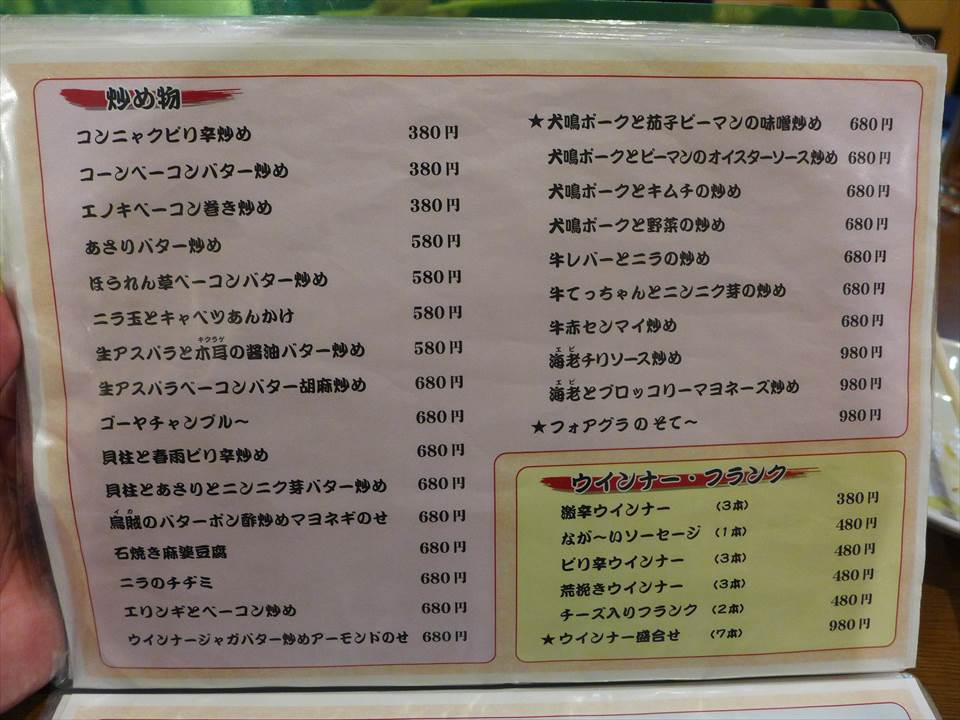 炒め物
コンニャクピリ辛炒め 380円
コーンベーコンバター炒め 380円
エノキベーコン巻き炒め 380円
あさりバター炒め 580円
ほうれん草ベーコンバター炒め 580円
ニラ玉とキャベツあんかけ 580円
キクラゲ
生アスパラと木耳の醤油バター炒め 580円
生アスパラベーコンバター胡麻炒め 680円
ゴーヤチャンプル～ 680円
貝柱と春雨ピリ辛炒め 680円
貝柱とあさりとニンニク芽バター炒め 680円
イカ
烏賊のバターポン酢炒めマヨネギのせ 680円
石焼き麻婆豆腐 680円
ニラのチヂミ 680円
エリンギとベーコン炒め 680円
ウインナージャガバター炒めアーモンドのせ 680円
★犬鳴ポークと茄子ピーマンの味噌炒め 680円
犬鳴ポークとピーマンのオイスターソース炒め 680円
犬鳴ポークとキムチの炒め 680円
犬鳴ポークと野菜の炒め 680円
牛レバーとニラの炒め 680円
牛てっちゃんとニンニク芽の炒め 680円
牛赤センマイ炒め 680円
エビ
海老チリソース炒め 980円
エビ
海老とブロッコリーマヨネーズ炒め 980円
★フォアグラのそて～ 980円
ウインナー・フランク
激辛ウインナー (3本) 380円
なが～いソーセージ (1本) 480円
ピリ辛ウインナー (3本) 480円
荒挽きウインナー (3本) 480円
チーズ入りフランク (2本) 480円
★ウインナー盛合せ (7本) 980円